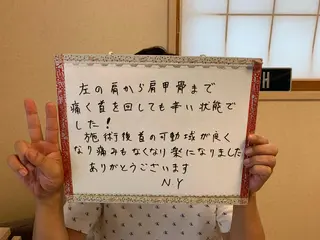 左の肩から肩甲骨まで
痛く首を回しても辛い状態で
した!
施術後首の可動域が良く
なり痛みもなくなり楽になりました
ありがとうございます
NY
H